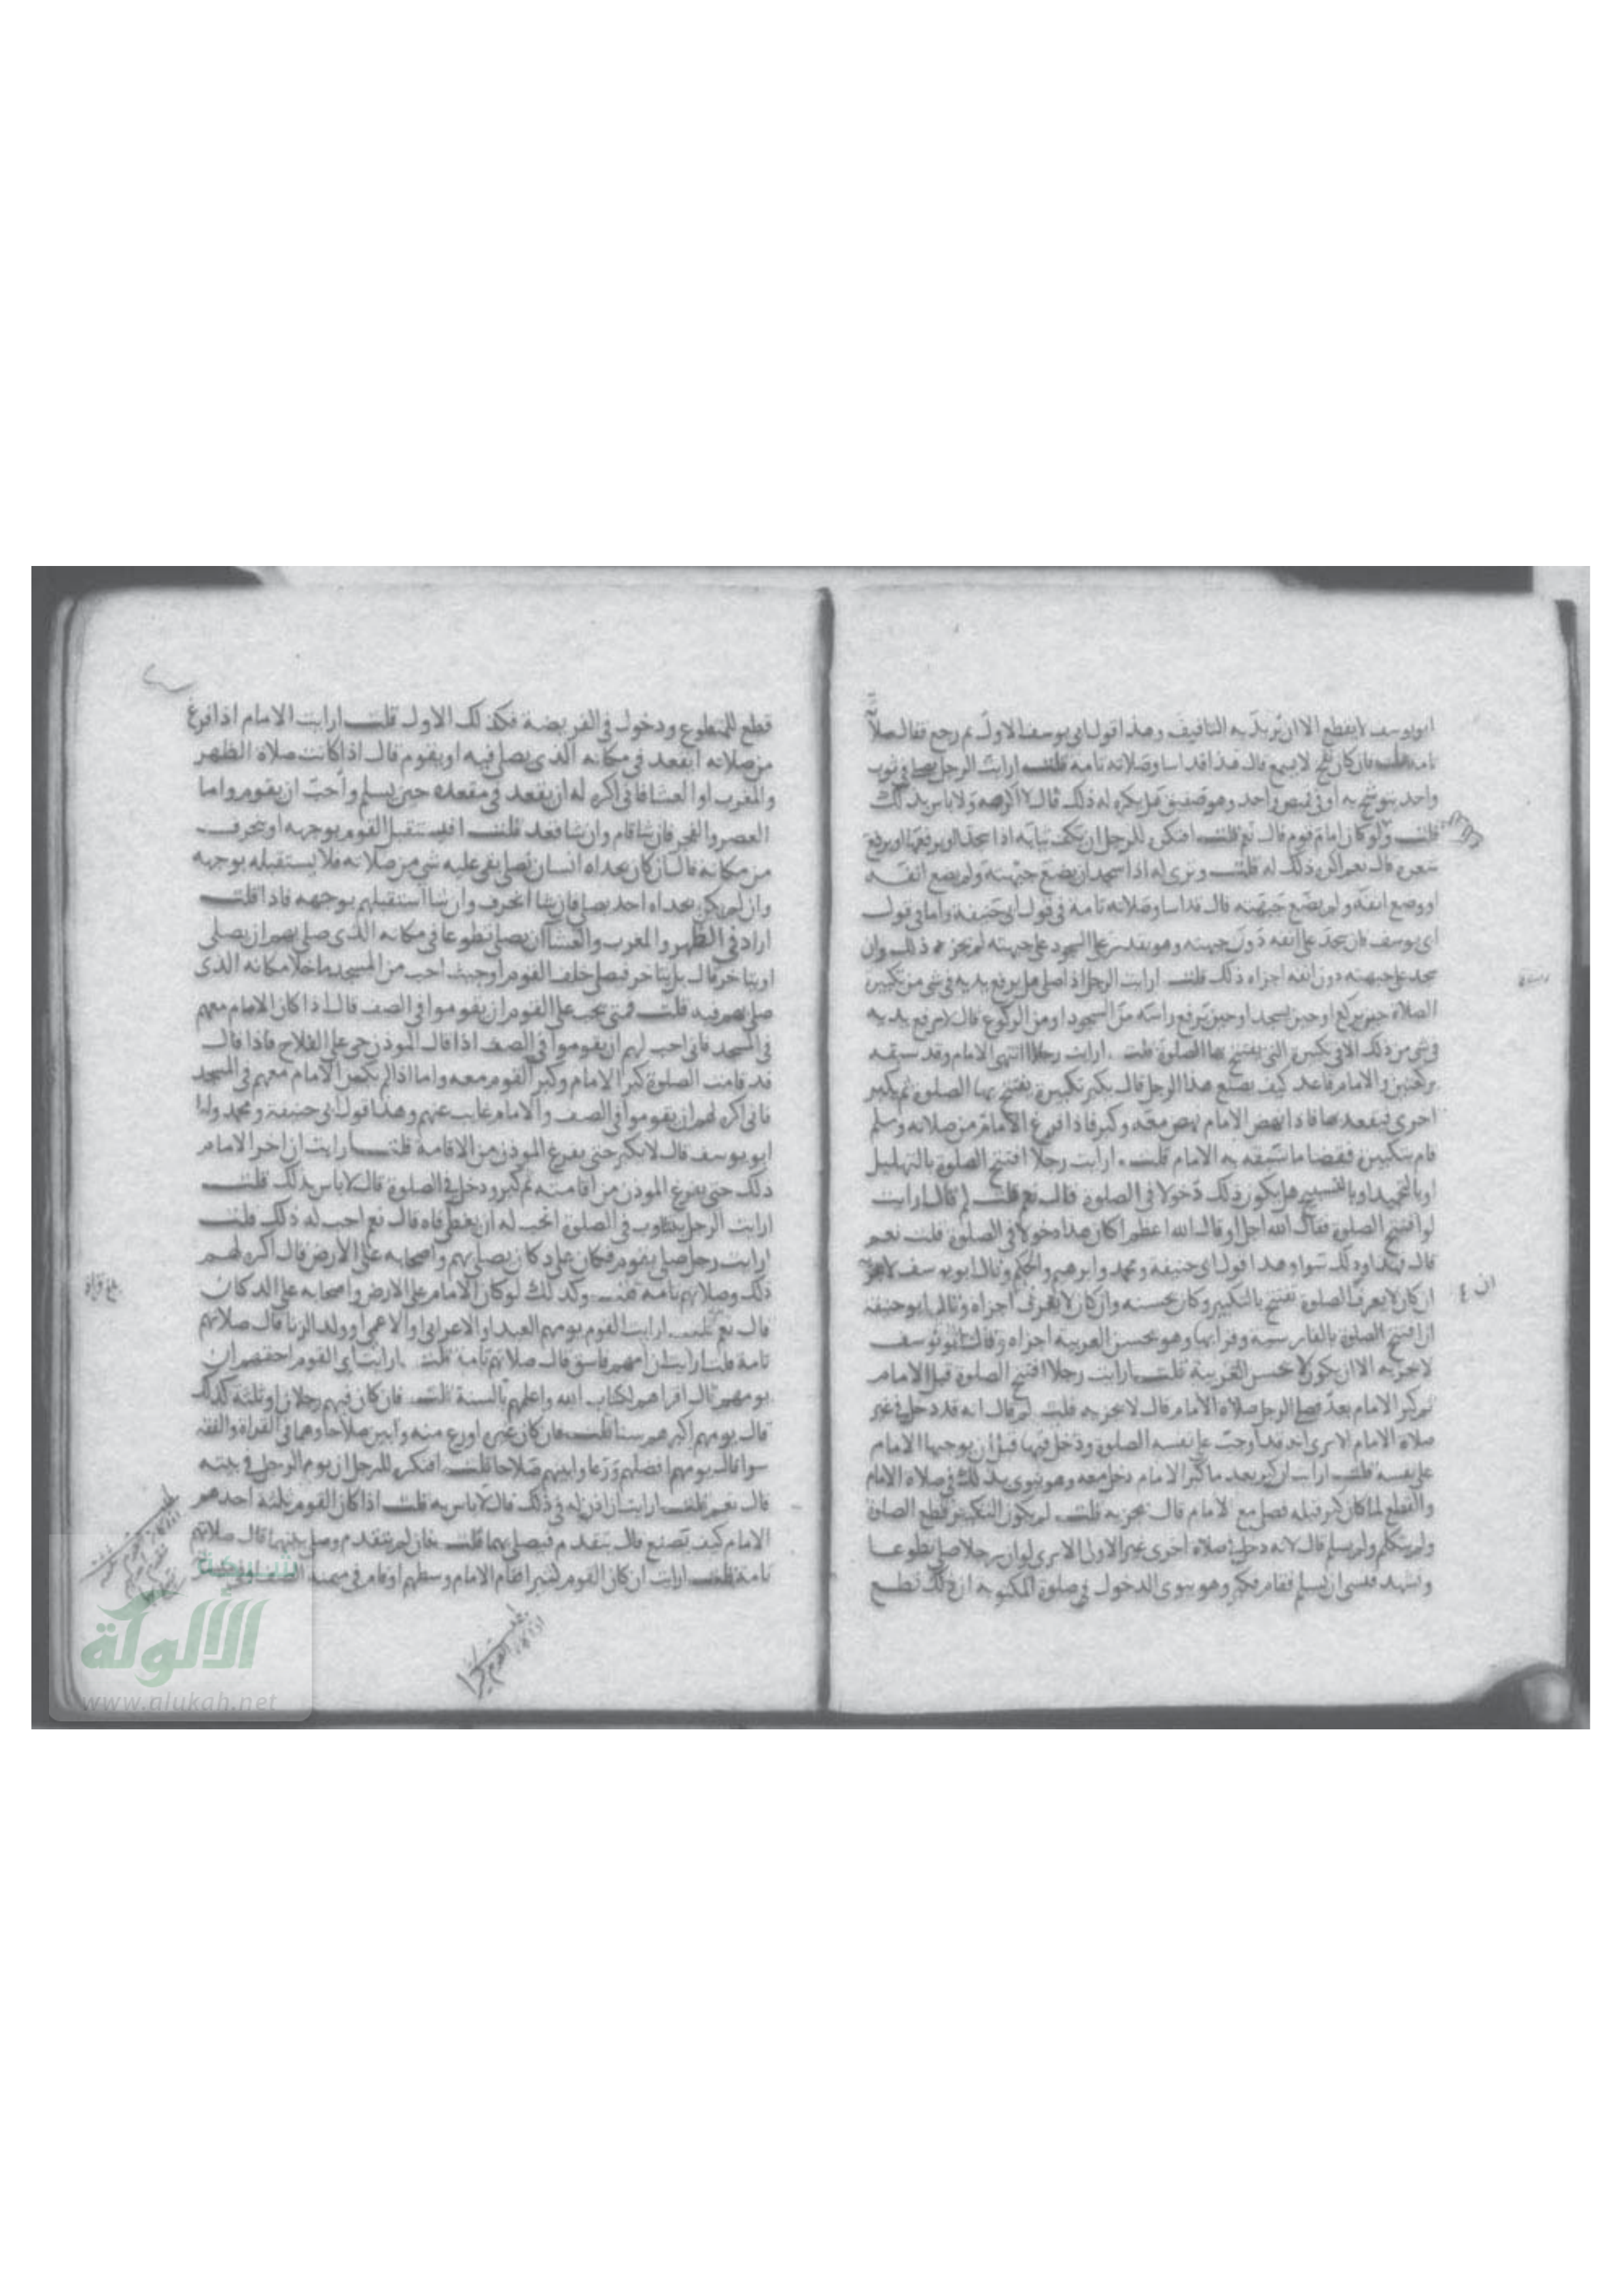 ابو يوسف لا يقطع الا ان يريد به التافيف وهذا قول ابي يوسف الاول ثم رجع فقال صلاته
تامة قلت فان كان نفخ لا يسمع قال هذا قد اسا وصلاته تامة قلت ارايت الرجل يصلي في ثوب
واحد يتوشح به او في قميص واحد وهو صفيق هل يكره له ذلك قال لا اكرهه ولا باس بذلك
قلت ولو كان امام قوم قال نعم قلت افتكره للرجل ان يكف ثيابه اذا سجد او يرفعها او يرفع
شعره قال نعم اكره ذلك له قلت وترى له اذا سجد ان يضع جبهته ولم يضع انفه
او وضع انفه ولم يضع جبهته قال قد اسا وصلاته تامة في قول ابي حنيفة واما في قول
ابي يوسف فان سجد على انفه دون جبهته وهو يقدر على السجود على جبهته لم يجزه ذلك وان
سجد على جبهته دون انفه اجزاه ذلك قلت ارايت الرجل اذا صلى هل يرفع يديه في شي من تكبير
الصلاة حين يركع او حين يسجد او حين يرفع راسه من السجود او من الركوع قال لا يرفع يديه
في شي من ذلك الا في تكبيرة التي يفتتح بها الصلوة قلت ارايت رجلا انتهى الامام وقد سبقه
بركعتين والامام قاعد كيف يصنع هذا الرجل قال يكبر تكبيرة يفتتح بها الصلوة ثم يكبر
اخرى فيقعد بها فاذا نهض الامام نهض معه وكبر فاذا فرغ الامام من صلاته وسلم
قام بتكبيرة فقضا ما سبقه به الامام قلت ارايت رجلا افتتح الصلوة بالتهليل
او بالتحميد او بالتسبيح هل يكون ذلك دخولا في الصلوة قال نعم قلت لم قال ارايت
لو افتتح الصلوة فقال الله اجل او قال الله اعظم اكان هذا دخولا في الصلوة قلت نعم
قال فهذا وذلك سوا وهذا قول ابي حنيفة ومحمد وابرهيم والحكم وقال ابو يوسف لا يجزيه
ان كان لا يعرف الصلوة تفتتح بالتكبير وكان يحسنه وان كان لا يعرف اجزاه وقال ابو حنيفة
ان افتتح الصلوة بالفارسية وقرا بها وهو يحسن العربية اجزاه وقال ابو يوسف
لا يجزيه الا ان يكون لا يحسن العربية قلت ارايت رجلا افتتح الصلوة قبل الامام
ثم كبر الامام بعد فصلى الرجل صلاة الامام قال لا يجزيه قلت لم قال انه قد دخل في غير
صلاة الامام الا ترى انه قد اوجب على نفسه الصلوة ودخل فيها قبل ان يوجبها الامام
على نفسه قلت ارايت ان كبر بعد ما كبر الامام دخل معه وهو ينوي بذلك في صلاة الامام
والقطع لما كان كبر قبله فصلى مع الامام قال يجزيه قلت لم يكون التكبير قطع الصلوة
ولم يتكلم ولم يسلم قال لانه دخل في صلاة اخرى غير الاولى الا ترى لو ان رجلا صلى تطوعا
وتشهد فنسي ان يسلم فقام فكبر وهو ينوي الدخول في صلوة المكتوبة ان ذلك قطع
قطع للتطوع ودخول في الفريضة فكذلك الاول قلت ارايت الامام اذا فرغ
من صلاته ايقعد في مكانه الذي يصلي فيه او يقوم قال اذا كانت صلاة الظهر
والمغرب او العشا فاني اكره له ان يقعد في مقعده حين يسلم واحب ان يقوم واما
العصر والفجر فان شا قام وان شا قعد قلت افيستقبل القوم بوجهه او ينحرف
من مكانه قال ان كان بحذاه انسان يصلي بقي عليه شي من صلاته فلا يستقبله بوجهه
وان لم يكن بحذاه احد يصلي فان شا انحرف وان شا استقبلهم بوجهه قلت فاذا
اراد في الظهر والمغرب والعشا ان يصلي تطوعا في مكانه الذي صلى يصير ان يصلي
او يتاخر قال بل يتاخر فيصلي خلف القوم او حيث احب من المسجد ما خلا مكانه الذي
صلى بهم فيه قلت فمتى يجب على القوم ان يقوموا في الصف قال اذا كان الامام معهم
في المسجد فاني احب لهم ان يقوموا في الصف اذا قال الموذن حي على الفلاح فاذا قال
قد قامت الصلوة كبر الامام وكبر القوم معه واما اذا لم يكن الامام معهم في المسجد
فاني اكره لهم ان يقوموا في الصف والامام غايب عنهم وهذا قول ابي حنيفة ومحمد واما
ابو يوسف قال لا يكبر حتى يفرغ الموذن من الاقامة قلت ارايت ان اخر الامام
ذلك حتى يفرغ الموذن من اقامته ثم كبر ودخل في الصلوة قال لا باس بذلك قلت
ارايت الرجل يتثاوب في الصلوة اتحب له ان يغطي فاه قال نعم احب له ذلك قلت
ارايت رجل صلى بقوم فكان على دكان يصلي بهم واصحابه على الارض قال اكره لهم
ذلك وصلاتهم تامة قلت وكذلك لو كان الامام على الارض واصحابه على الدكان
قال نعم قلت ارايت القوم يومهم العبد او الاعرابي او الاعمى او ولد الزنا قال صلاتهم
تامة قلت ارايت ان امهم فاسق قال صلاتهم تامة قلت ارايت اي القوم احقهم ان
يومهم قال اقراهم لكتاب الله واعلمهم بالسنة قلت فان كان فيهم رجلان او ثلثة كذلك
قال يومهم اكبرهم سنا قلت فان كان غيره اورع منه وابين صلاحا وهما في القراة والفقه
سوا قال يومهم افضلهم ورعا وابينهم صلاحا قلت افتكره للرجل ان يوم الرجل في بيته
قال نعم قلت ارايت ان اذن له في ذلك قال لا باس به قلت اذا كان القوم ثلثة احدهم
الامام كيف تصنع قال يتقدم فيصلي بهما قلت فان لم يتقدم وصلى بينهما قال صلاتهم
تامة قلت ارايت ان كان القوم كثيرا فقام الامام وسطهم او قام في ميمنة الصف او في
بلغ قراة
شبكة
الألوكة
www.alukah.net